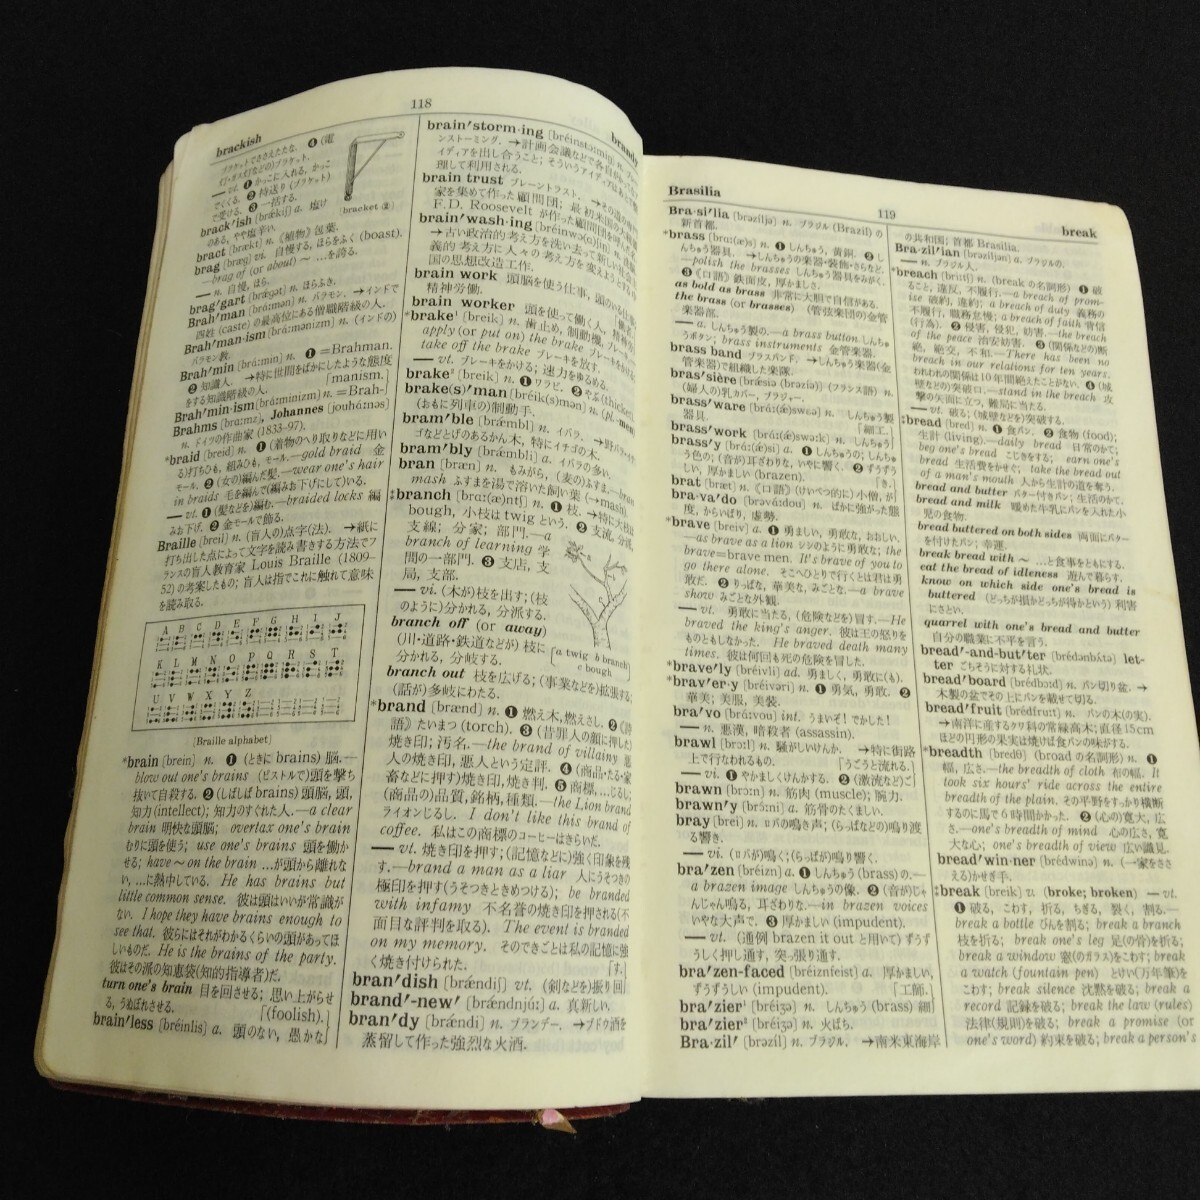 118
brackish
brandy
ブラケットでささえたたな. ❹ (電
灯・ガス灯などの)ブラケット.
—vt. ❶ かっこに入れる, かっこ
でくくる. ❷ 持送り (ブラケット)
で受ける. ❸ 一括する.
[bracket ②]
brack'ish [brǽkiʃ] a. 塩け
のある, やや塩辛い.
bract [brækt] n. 《植物》包葉.
brag [bræg] vi. 自慢する, ほらをふく (boast).
—brag of (or about) ~ …を誇る.
— n. 自慢, ほら.
brag'gart [brǽgət] n. ほらふき.
Brah'man [brá:mən] n. バラモン. →インドで
四姓 (caste) の最高位にある僧職階級の人.
Brah'man·ism [brá:mənizm] n. (インドの)
バラモン教.
Brah'min [brá:min] n. ❶ =Brahman.
❷ 知識人. →特に世間をばかにしたような態度
をする知識階級の人. 「manism.
Brah'min·ism [brá:minizm] n. =Brah-
Brahms [brɑ:mz], Johannes [jouhǽnəs]
n. ドイツの作曲家 (1833–97).
*braid [breid] n. ❶ (着物のへり取りなどに用い
る)打ちひも, 組みひも, モール.—gold braid 金
モール. ❷ (女の)編んだ髪.—wear one's hair
in braids 毛を編んで(編みお下げにして)いる.
— vt. ❶ (髪など)を編む.—braided locks 編
みお下げ. ❷ 金モールで飾る.
Braille [breil] n. (盲人の)点字(法). →紙に
打ち出した点によって文字を読み書きする方法でフ
ランスの盲人教育家 Louis Braille (1809–
52) の考案したもの; 盲人は指でこれに触れて意味
を読み取る.
A B C D E F G H I J
K L M N O P Q R S T
U V W X Y Z
[Braille alphabet]
*brain [brein] n. ❶ (ときに brains) 脳.—
blow out one's brains (ピストルで)頭を撃ち
抜いて自殺する. ❷ (しばしば brains) 頭脳, 頭,
知力 (intellect); 知力のすぐれた人.—a clear
brain 明快な頭脳; overtax one's brain
むりに頭を使う; use one's brains 頭を働か
せる; have ~ on the brain …が頭から離れな
い, …に熱中している. He has brains but
little common sense. 彼は頭はいいが常識が
ない. I hope they have brains enough to
see that. 彼らにはそれがわかるくらいの頭があってほ
しいものだ. He is the brains of the party.
彼はその派の知恵袋(知的指導者)だ.
turn one's brain 目を回させる; 思い上がらせ
る, うぬぼれさせる. 「(foolish).
brain'less [bréinlis] a. 頭のない, 愚かな
brain'storm·ing [bréinstɔ:miŋ] n.
ンストーミング. →計画会議などで各自が
イディアを出し合うこと; そういうアイディアは
理して利用される.
brain trust ブレーントラスト. →その道の
家を集めて作った顧問団; 最初米国の大統領
F.D. Roosevelt が作った顧問団を
brain'wash·ing [bréinwɔ(ɑ)ʃiŋ] n.
→古い政治的考え方を洗い去って新しい社会主
義的考え方に人々の考え方を変えようとする
国の思想改造工作.
brain work 頭脳を使う仕事, 頭
精神労働.
brain worker 頭を使って働く人,
*brake¹ [breik] n. 歯止め, 制動機, ブレーキ.
apply (or put on) the brake ブレーキをかける
take off the brake ブレーキを放す.
— vt. ブレーキをかける; 速力をゆるめる.
brake² [breik] n. ❶ ワラビ. ❷ やぶ (thicket).
brake(s)'man [bréik(s)mən] n. (pl. -men)
(おもに列車の)制動手.
bram'ble [brǽmbl] n. イバラ. →野バラやイチ
ゴなどとげのあるかん木, 特にイチゴの木.
bram'bly [brǽmbli] a. イバラの多い.
bran [bræn] n. もみがら, (麦の)ふすま.—bran
mash ふすまを湯で溶いた飼い葉 (→mash).
‡branch [brɑ:(æ)ntʃ] n. ❶ 枝. →特に大枝は
bough, 小枝は twig という. ❷ 支流, 分派,
支線; 分家; 部門.—a
branch of learning 学
問の一部門. ❸ 支店, 支
局, 支部.
— vi. (木が)枝を出す; (枝
のように)分かれる, 分派する.
branch off (or away)
(川・道路・鉄道などが) 枝に
分かれる, 分岐する.
[a twig b branch
c bough]
branch out 枝を広げる; (事業などを)拡張する;
(話が)多岐にわたる.
*brand [brænd] n. ❶ 燃え木, 燃えさし. ❷ 《詩
語》たいまつ (torch). ❸ (昔罪人の顔に押した)
焼き印; 汚名.—the brand of villainy 悪
人の焼き印, 悪人という定評. ❹ (商品・たる・家
畜などに押す)焼き印, 焼き判. ❺ 商標, …じるし;
(商品の)品質, 銘柄, 種類.—the Lion brand
ライオンじるし. I don't like this brand of
coffee. 私はこの商標のコーヒーはきらいだ.
— vt. 焼き印を押す; (記憶などに)強く印象を残
す.—brand a man as a liar 人にうそつきの
極印を押す(うそつきときめつける); be branded
with infamy 不名誉の焼き印を押される(不
面目な評判を取る). The event is branded
on my memory. そのできごとは私の記憶に強
く焼き付けられた. 「す.
bran'dish [brǽndiʃ] vt. (剣などを)振り回
brand'-new' [brǽndnjú:] a. 真新しい.
bran'dy [brǽndi] n. ブランデー. →ブドウ酒を
蒸留して作った強烈な火酒.
Brasilia
119
break
Bra·si'lia [brəzíljə] n. ブラジル (Brazil) の
新首都.
*brass [brɑ:(æ)s] n. ❶ しんちゅう, 黄銅. ❷ し
んちゅう器具. →しんちゅうの楽器・装飾・さらなど.
—polish the brasses しんちゅう器具をみがく.
❸ 《口語》鉄面皮, 厚かましさ.
as bold as brass 非常に大胆で自信がある.
the brass (or brasses) (管弦楽団の)金管
楽器部.
— a. しんちゅう製の.—a brass button しんち
ゅうボタン; brass instruments 金管楽器.
brass band ブラスバンド. →しんちゅう楽器(金
管楽器)で組織した楽隊.
bras'sière [brǽsiə (brəzíə)] (フランス語) n.
(婦人の)乳カバー, ブラジャー.
brass'ware [brɑ́:(ǽ)sweə] n. しんちゅう製
器具. 「細工.
brass'work [brɑ́:(ǽ)swə:k] n. しんちゅう
brass'y [brɑ́:(ǽ)si] a. ❶ しんちゅうの; しんちゅ
う色の; (音が)耳ざわりな, いやに響く. ❷ ずうずう
しい, 厚かましい (brazen). 「き.
brat [bræt] n. 《口語》(けいべつ的に) 小僧, が
bra·va'do [brəvá:dou] n. ばかに強がった態
度, からいばり, 虚勢.
*brave [breiv] a. ❶ 勇ましい, 勇敢な, おおしい.
—as brave as a lion シシのように勇敢な; the
brave=brave men. It's brave of you to
go there alone. そこへひとりで行くとは君は勇
敢だ. ❷ りっぱな, 華美な, みごとな.—a brave
show みごとな外観.
— vt. 勇敢に当たる, (危険などを)冒す.—He
braved the king's anger. 彼は王の怒りを
ものともしなかった. He braved death many
times. 彼は何回も死の危険を冒した.
*brave'ly [bréivli] ad. 勇ましく, 勇敢に(も).
*brav'er·y [bréivəri] n. ❶ 勇気, 勇敢. ❷
華美; 美服, 美装.
bra'vo [brá:vou] int. うまいぞ! でかした!
— n. 悪漢, 暗殺者 (assassin).
brawl [brɔ:l] n. 騒がしいけんか. →特に街路
上で行なわれるもの. 「うごうと流れる.
— vi. ❶ やかましくけんかする. ❷ (激流など)ご
brawn [brɔ:n] n. 筋肉 (muscle); 腕力.
brawn'y [brɔ́:ni] a. 筋骨のたくましい.
bray [brei] n. ロバの鳴き声; (らっぱなどの)鳴り渡
る響き.
— vi. (ロバが)鳴く; (らっぱが)鳴り響く.
bra'zen [bréizn] a. ❶ しんちゅう (brass) の.—
a brazen image しんちゅうの像. ❷ (音が)じ
ゃんじゃん鳴る, 耳ざわりな.—in brazen voices
いやな大声で. ❸ 厚かましい (impudent).
— vt. (通例 brazen it out と用いて) ずうず
うしく押し通す, 突っ張り通す.
bra'zen-faced [bréiznfeist] a. 厚かましい,
ずうずうしい (impudent). 「工師.
bra'zier¹ [bréiʒə] n. しんちゅう (brass) 細
bra'zier² [bréiʒə] n. 火ばち.
Bra·zil' [brəzíl] n. ブラジル. →南米東海岸
の共和国; 首都 Brasilia.
Bra·zil'ian [brəzíljən] a. ブラジルの.
— n. ブラジル人.
*breach [bri:tʃ] n. (break の名詞形) ❶ 破
ること, 違反, 不履行.—a breach of prom-
ise 破約, 違約; a breach of duty 義務の
不履行, 職務怠慢; a breach of faith 背信
(行為). ❷ 侵害, 侵犯, 妨害.—the breach
of the peace 治安妨害. ❸ (関係などの)断
絶, 絶交, 不和.—There has been no
breach in our relations for ten years.
われわれの関係は10年間絶えたことがない. ❹ (城
壁などの)突破口.—stand in the breach 攻
撃の矢面に立つ, 難局に当たる.
— vt. 破る; (城壁などを)突破する.
‡bread [bred] n. ❶ 食パン. ❷ 食物 (food);
生計 (living).—daily bread 日常のかて;
beg one's bread こじきをする; earn one's
bread 生活費をかせぐ; take the bread out
of a man's mouth 人から生計の道を奪う.
bread and butter バター付きパン; 生活のかて.
bread and milk 暖めた牛乳にパンを入れた小
児の食物.
bread buttered on both sides 両面にバター
を付けたパン; 幸運.
break bread with ~ …と食事をともにする.
eat the bread of idleness 遊んで暮らす.
know on which side one's bread is
buttered (どっちが損かどっちが得かという) 利害
にさとい.
quarrel with one's bread and butter
自分の職業に不平を言う.
bread'-and-but'ter [brédənbʌ́tə] let-
ter ごちそうに対する礼状.
bread'board [brédbɔ:d] n. パン切り盆. →
木製の盆でその上にパンを載せて切る.
bread'fruit [brédfru:t] n. パンの木(の実).
→南洋に産するクワ科の常緑高木; 直径15cm
ほどの円形の果実は焼けば食パンの味がする.
*breadth [bredθ] n. (broad の名詞形) ❶
幅, 広さ.—the breadth of cloth 布の幅. It
took six hours' ride across the entire
breadth of the plain. その平野をすっかり横断
するのに馬で6時間かかった. ❷ (心の)寛大, 広
さ.—one's breadth of mind 心の広さ, 寛
大な心; one's breadth of view 広い識見.
bread'win·ner [brédwinə] n. (一家をささ
える)かせぎ手.
‡break [breik] v. (broke; broken) — vt.
❶ 破る, こわす, 折る, ちぎる, 裂く, 割る.—
break a bottle びんを割る; break a branch
枝を折る; break one's leg 足(の骨)を折る;
break a window 窓(のガラス)をこわす; break
a watch (fountain pen) とけい(万年筆)を
こわす; break silence 沈黙を破る; break a
record 記録を破る; break the law (rules)
法律(規則)を破る; break a promise (or
one's word) 約束を破る; break a person's